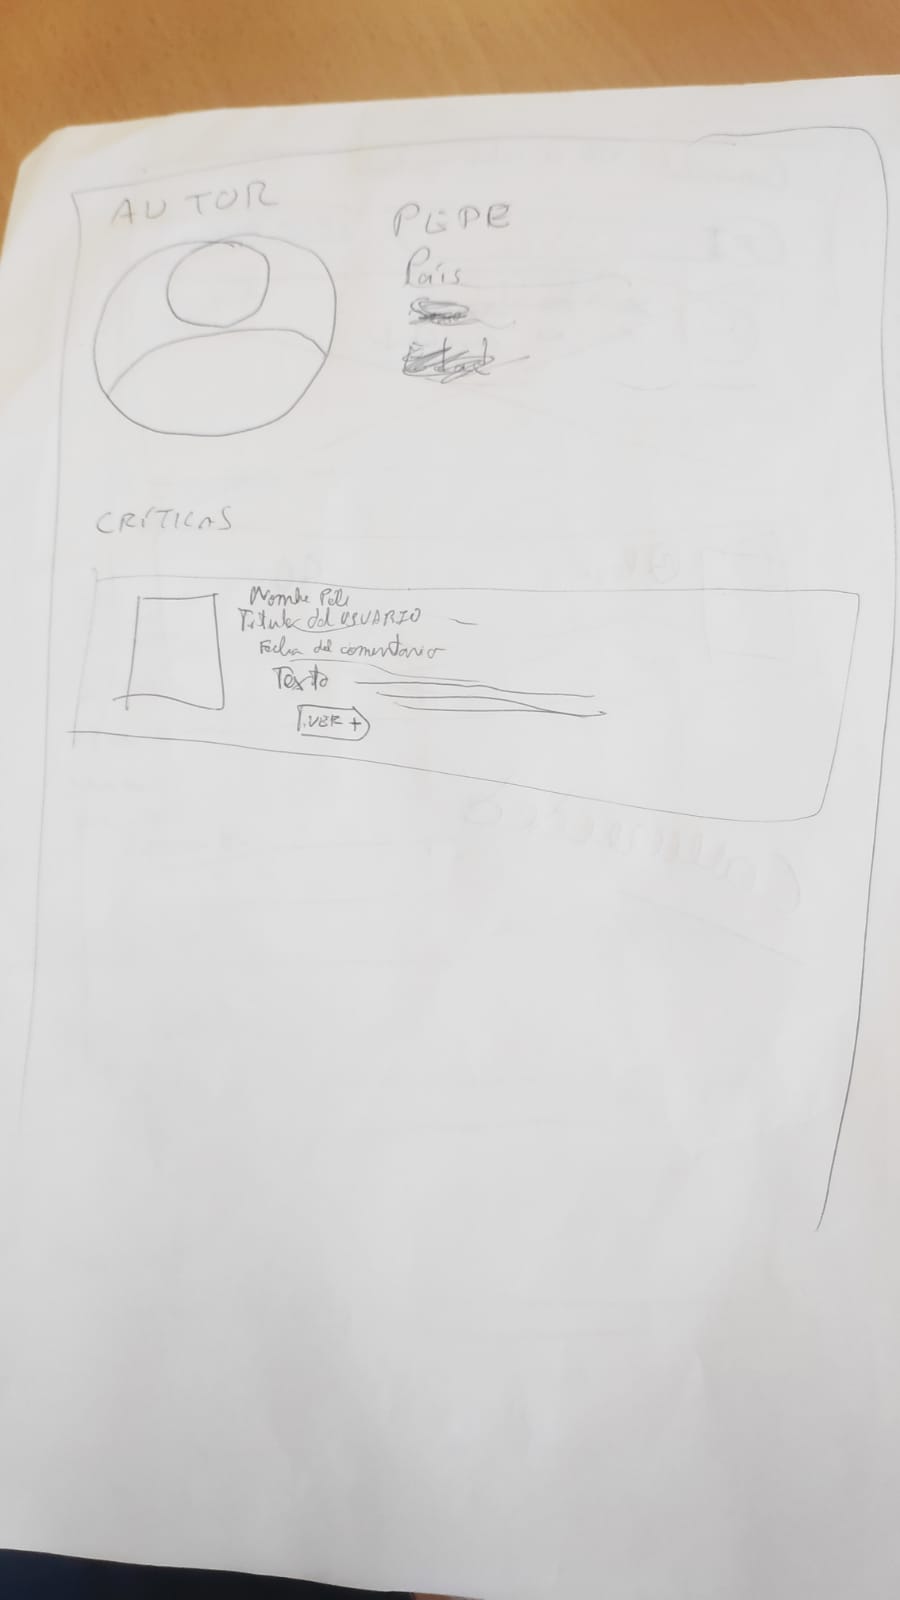 AUTOR
PEPE
País
CRÍTICAS
Nombre Peli
Titular del USUARIO
Fecha del comentario
Texto
VER +